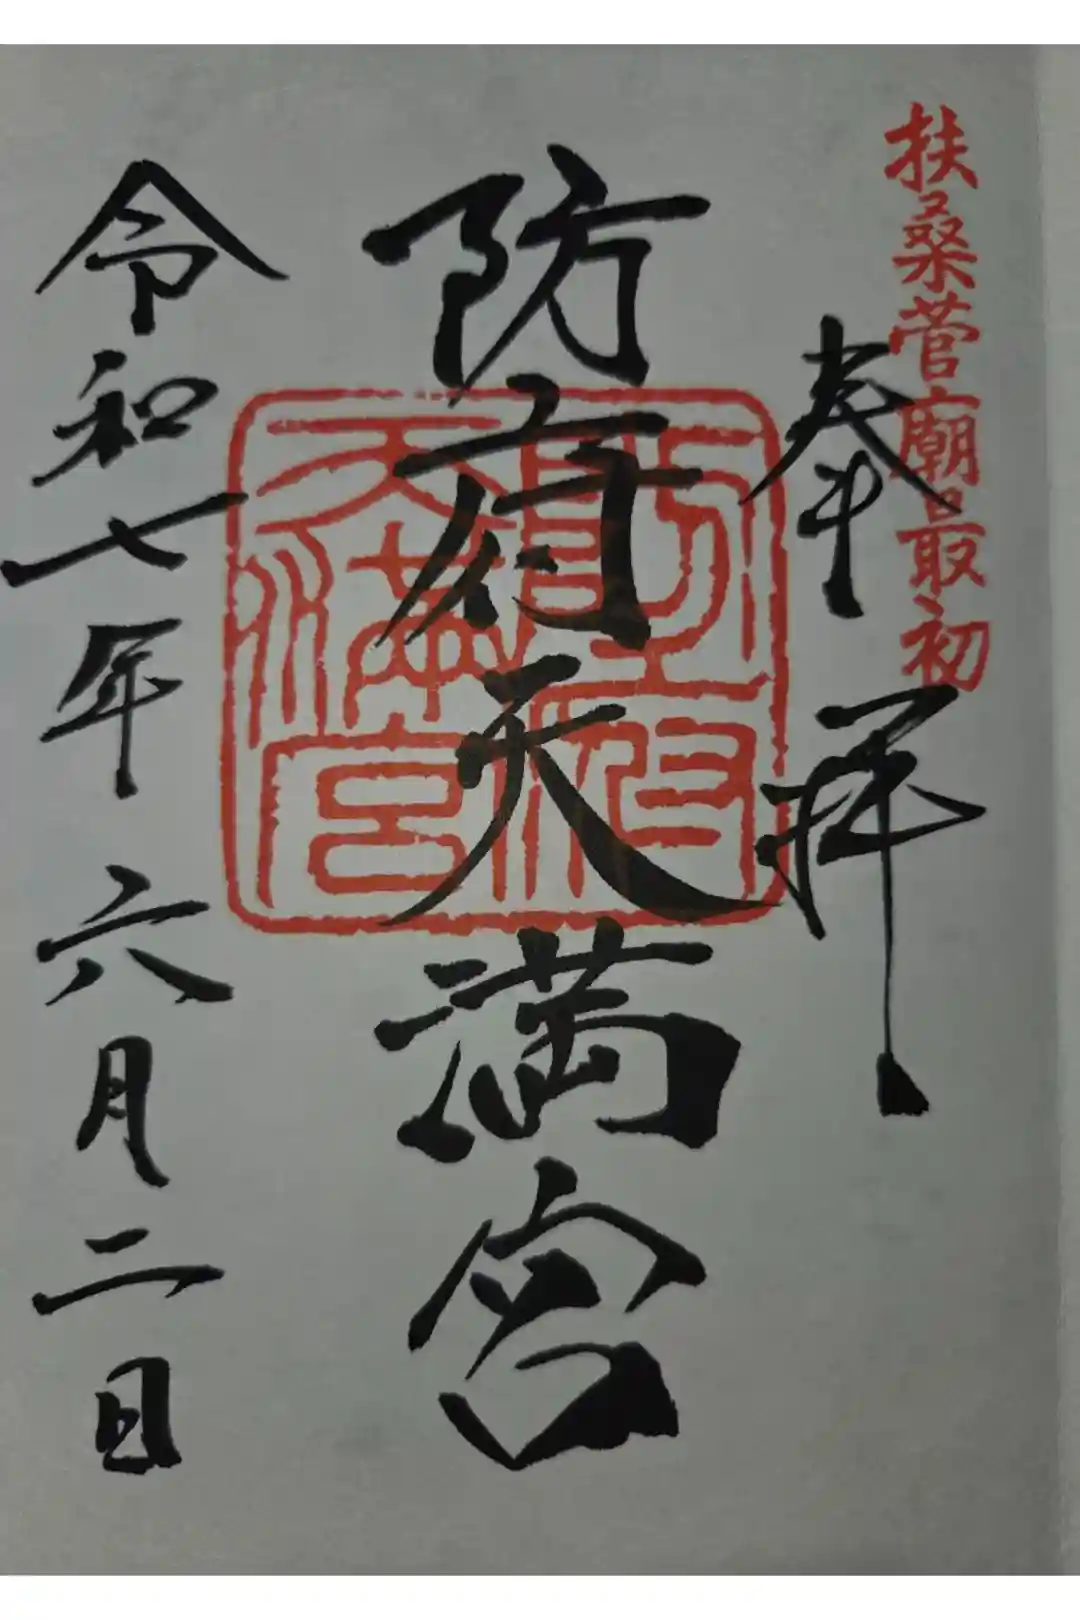 扶桑菅廟最初
奉拝
防府天満宮
天満宮
令和七年六月二日